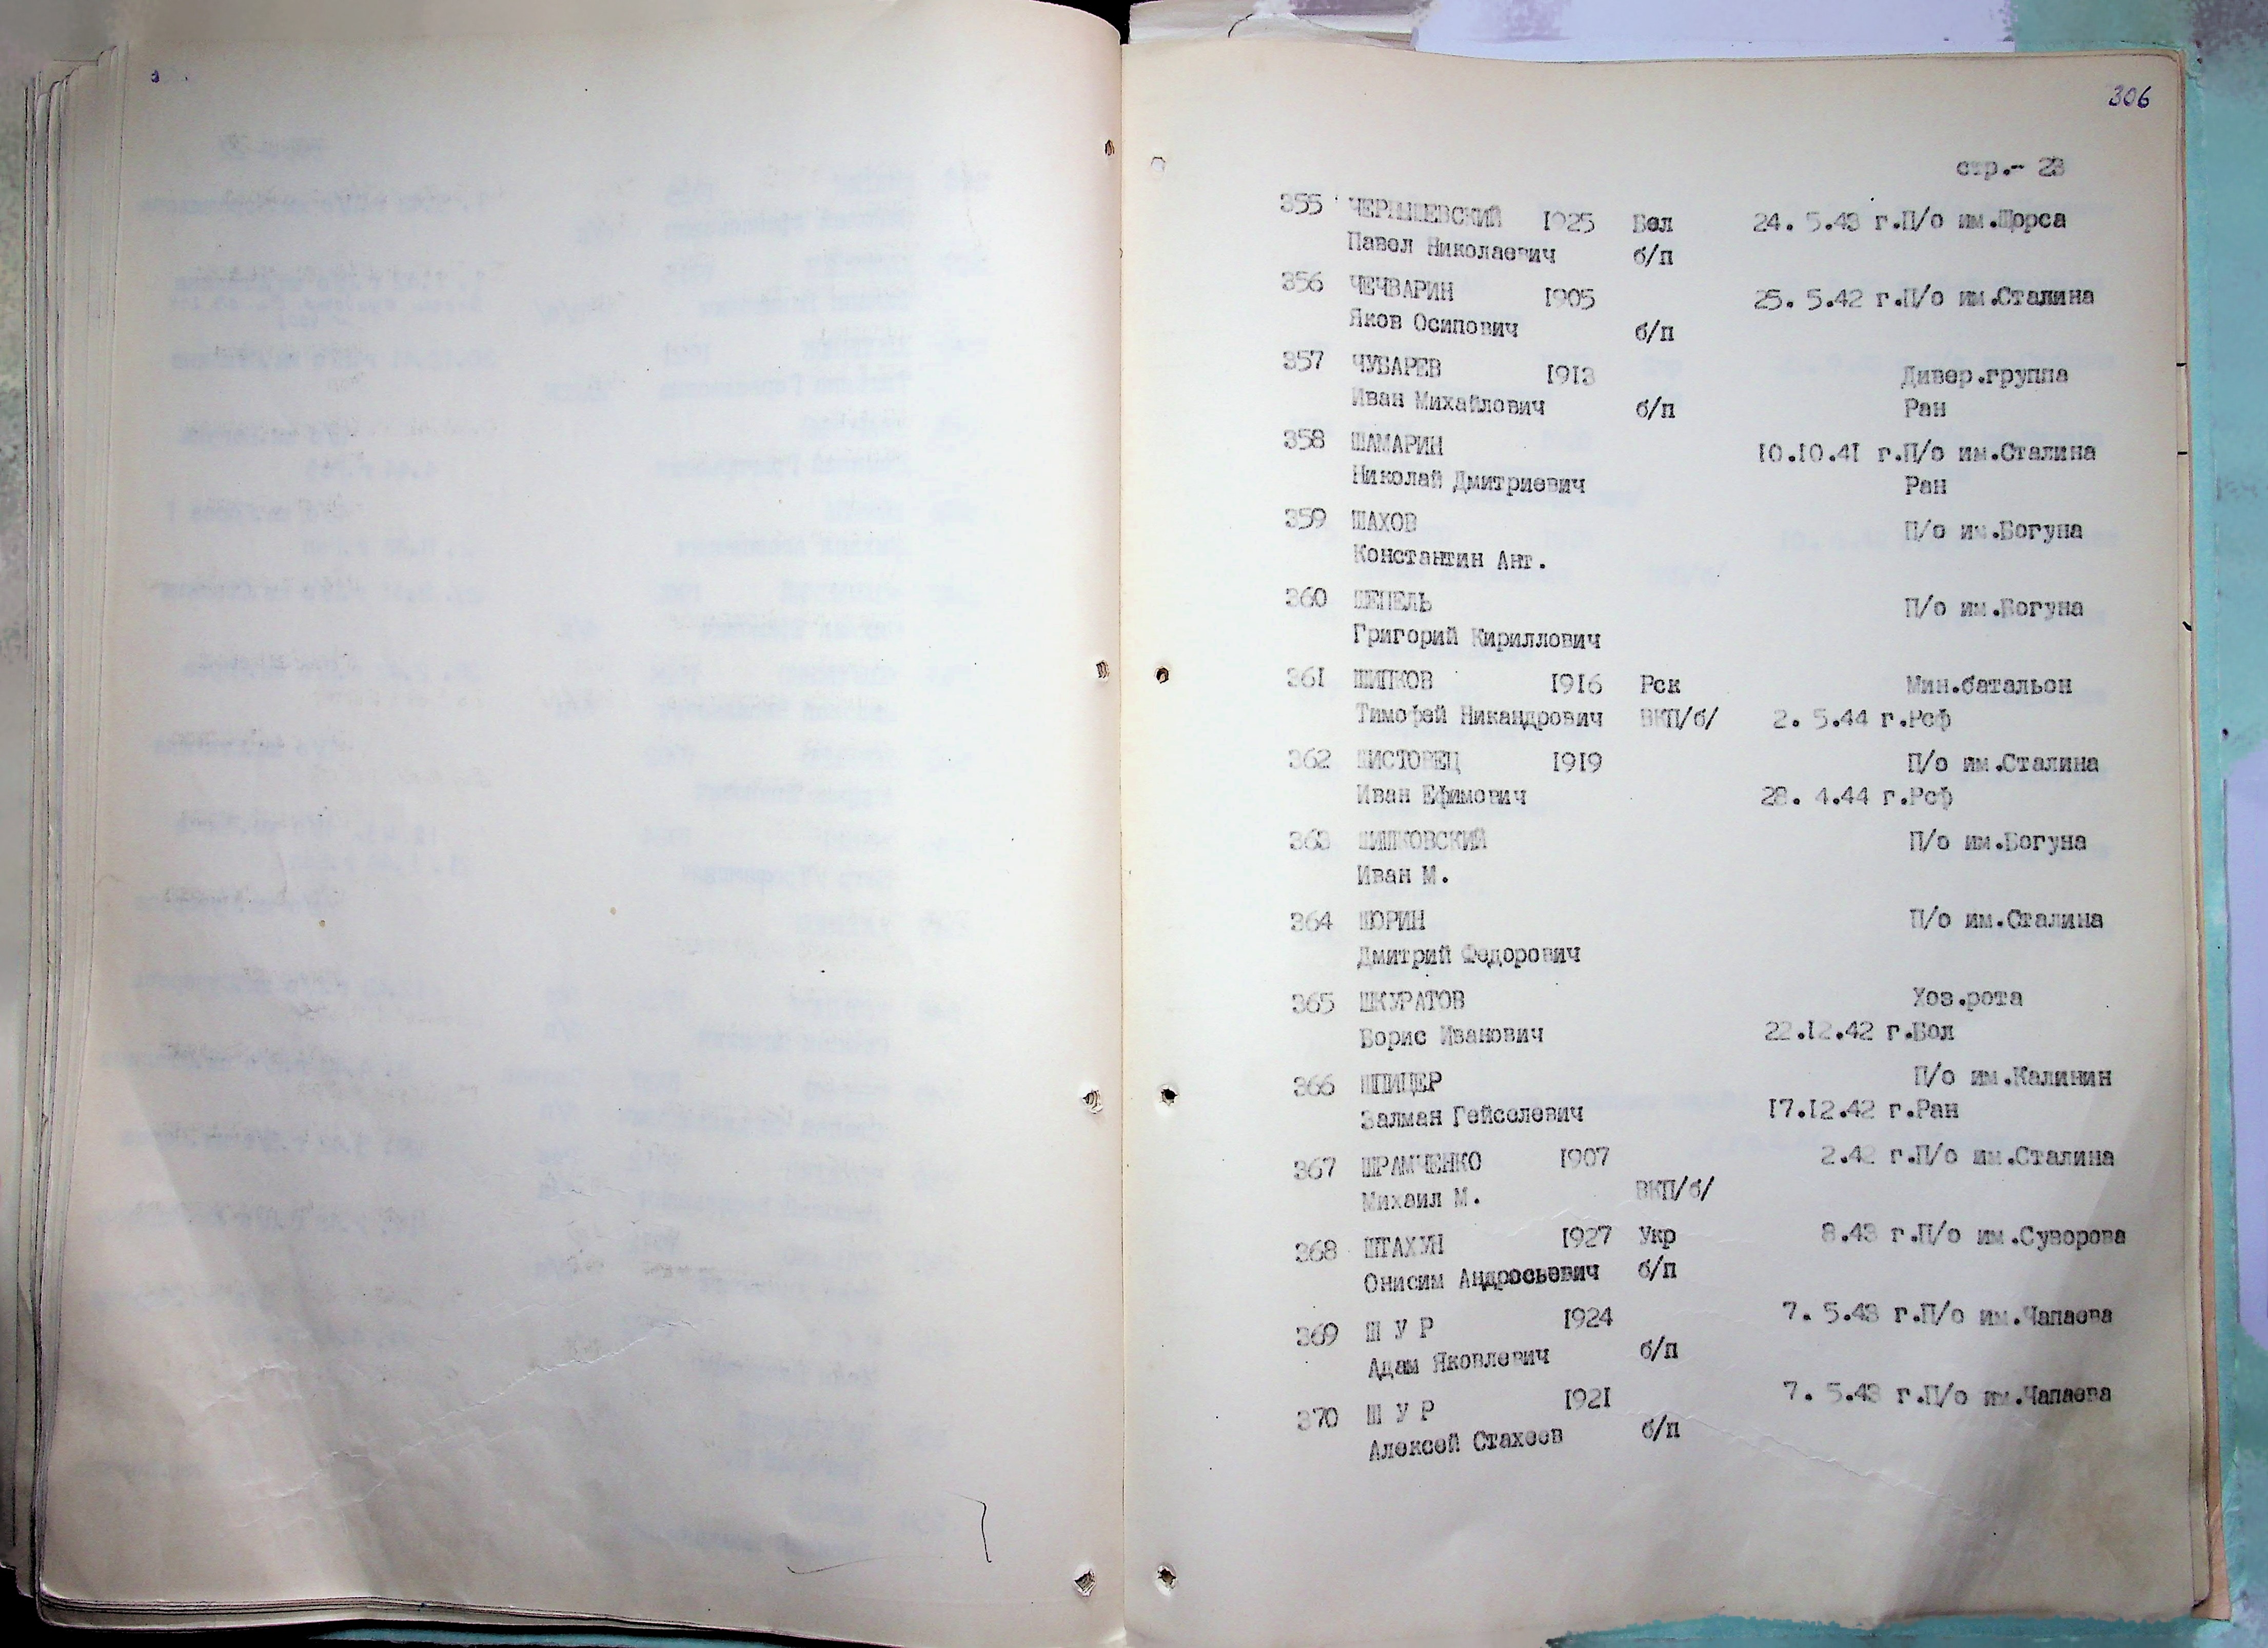 306
стр.- 23
355 ЧЕРНЫШЕВСКИЙ 1925 Бел 24. 5.43 г.П/о им.Щорса
Павел Николаевич б/п
356 ЧЕЧВАРИН 1905 25. 5.42 г.П/о им.Сталина
Яков Осипович б/п
357 ЧУБАРЕВ 1913 Дивер.группа
Иван Михайлович б/п Ран
358 ШАМАРИН 10.10.41 г.П/о им.Сталина
Николай Дмитриевич Ран
359 ШАХОВ П/о им.Богуна
Константин Ант.
360 ШЕПЕЛЬ П/о им.Богуна
Григорий Кириллович
361 ШИПКОВ 1916 Рск Мин.батальон
Тимофей Никандрович ВКП/б/ 2. 5.44 г.Рсф
362 ШИСТОРЕЦ 1919 П/о им.Сталина
Иван Ефимович 28. 4.44 г.Рсф
363 П/о им.Богуна
Иван М.
364 ШОРИН П/о им.Сталина
Дмитрий Федорович
365 ШКУРАТОВ Хоз.рота
Борис Иванович 22.12.42 г.Бол
366 ШПИЦЕР П/о им.Калинин
Залман Гейселевич 17.12.42 г.Ран
367 ШРАМЧЕНКО 1907 2.42 г.П/о им.Сталина
Михаил М. ВКП/б/
368 ШТАХУН 1927 Укр 8.43 г.П/о им.Суворова
Онисим Андросьевич б/п
369 Ш У Р 1924 7. 5.43 г.П/о им.Чапаева
Адам Яковлевич б/п
370 Ш У Р 1921 7. 5.43 г.П/о им.Чапаева
Алексей Стахеев б/п